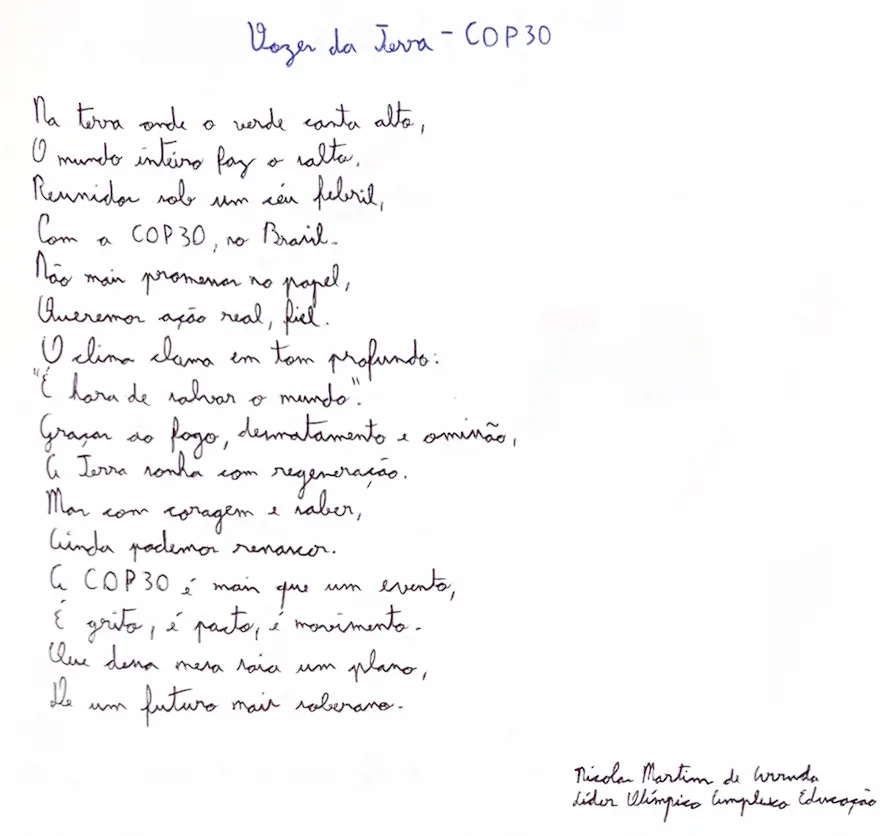 Vozes da Terra - COP30
Na terra onde o verde canta alto,
O mundo inteiro faz o salto.
Reunidos sob um céu febril,
Com a COP30, no Brasil.
Não mais promessas no papel,
Queremos ação real, fiel.
O clima clama em tom profundo:
"É hora de salvar o mundo".
Graças ao fogo, desmatamento e omissão,
A Terra sonha com regeneração.
Mas com coragem e saber,
Ainda podemos renascer.
A COP30 é mais que um evento,
É grito, é pacto, é movimento.
Que dessa mesa saia um plano,
De um futuro mais soberano.
Nicolas Martins de Arruda
Líder Olímpico Complexo Educação